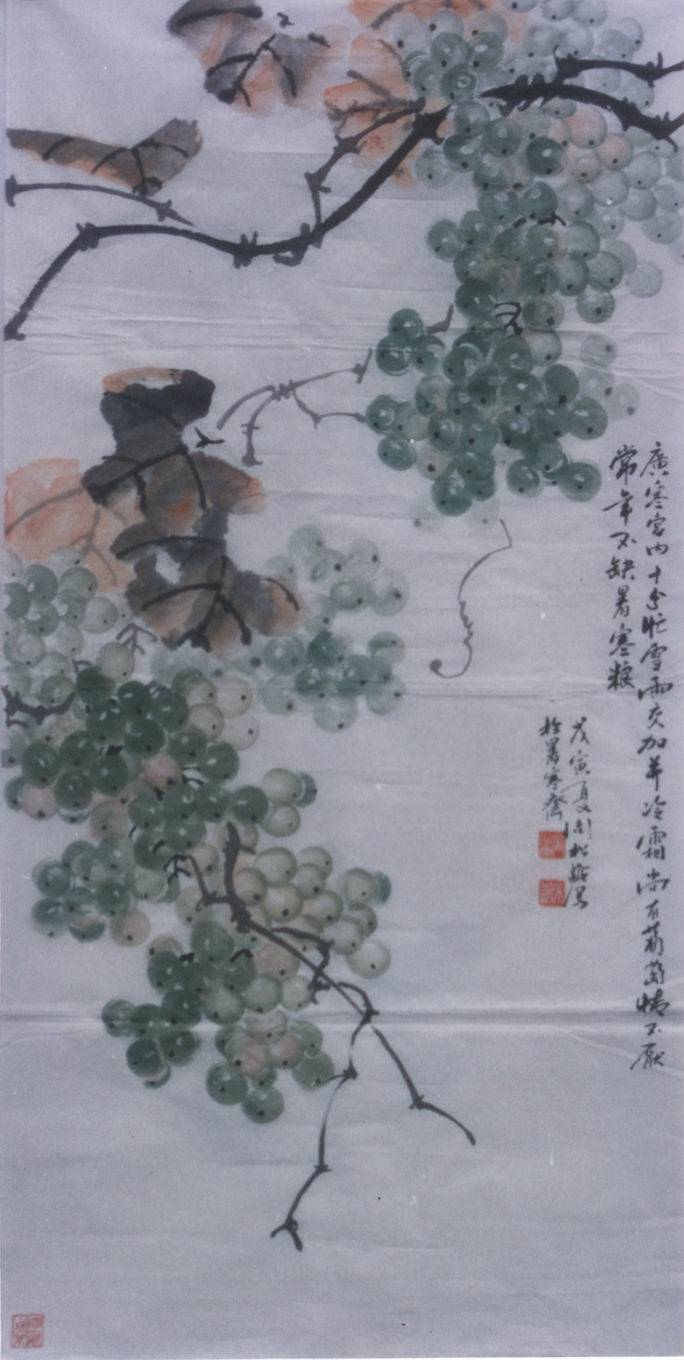 廣寒宮内十分忙雪雨交加并冷霜尚有葡萄情不厭
常年不缺暑寒糧
戊寅夏周松
於暑寒齋